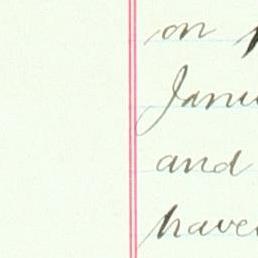 on
Janu
and
have